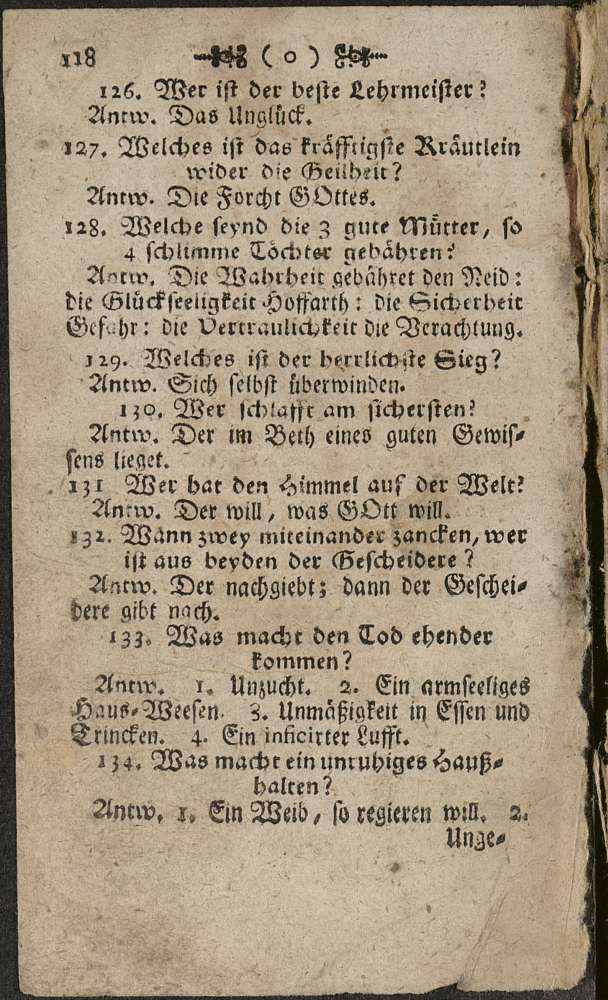 118 ( o )
126. Wer ist der beste Lehrmeister?
Antw. Das Unglück.
127. Welches ist das kräfftigste Kräutlein
wider die Geilheit?
Antw. Die Forcht GOttes.
128. Welche seynd die 3 gute Mütter, so
4 schlimme Töchter gebähren?
Antw. Die Wahrheit gebähret den Neid:
die Glückseeligkeit Hoffarth: die Sicherheit
Gefahr: die Vertraulichkeit die Verachtung.
129. Welches ist der herrlichste Sieg?
Antw. Sich selbst überwinden.
130. Wer schlafft am sichersten?
Antw. Der im Beth eines guten Gewis-
sens lieget.
131 Wer hat den Himmel auf der Welt?
Antw. Der will, was GOtt will.
132. Wann zwey miteinander zancken, wer
ist aus beyden der Gescheidere?
Antw. Der nachgiebt; dann der Geschei-
dere gibt nach.
133. Was macht den Tod ehender
kommen?
Antw. 1. Unzucht. 2. Ein armseeliges
Haus-Weesen. 3. Unmäßigkeit in Essen und
Trincken. 4. Ein inficirter Lufft.
134. Was macht ein unruhiges Hauß-
halten?
Antw. 1. Ein Weib, so regieren will. 2.
Unge-